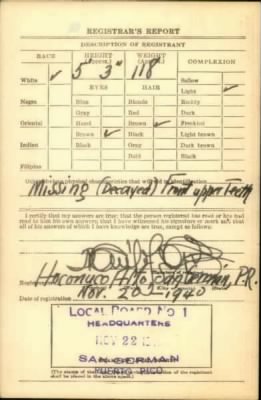 REGISTRAR'S REPORT
DESCRIPTION OF REGISTRANT
RACE HEIGHT (Approx.) WEIGHT (Approx.) COMPLEXION
5' 3" 118
White ✓ Sallow
EYES HAIR Light ✓
Negro Blue Blonde Ruddy
Gray Red Dark
Oriental Hazel Brown ✓ Freckled
Brown ✓ Black Light brown
Indian Black Gray Dark brown
Bald Black
Filipino
Other obvious physical characteristics that will aid in identification
Missing (Decayed) Front upper Teeth
I certify that my answers are true; that the person registered has read or has had
read to him his own answers; that I have witnessed his signature or mark and that
all of his answers of which I have knowledge are true, except as follows:
San German, P.R.
Date of registration Nov. 20 - 1940
LOCAL BOARD NO 1
HEADQUARTERS
NOV 22
SAN GERMAN
PUERTO RICO
(The stamp of the Local Board having jurisdiction of the registrant
shall be placed in the above space.)